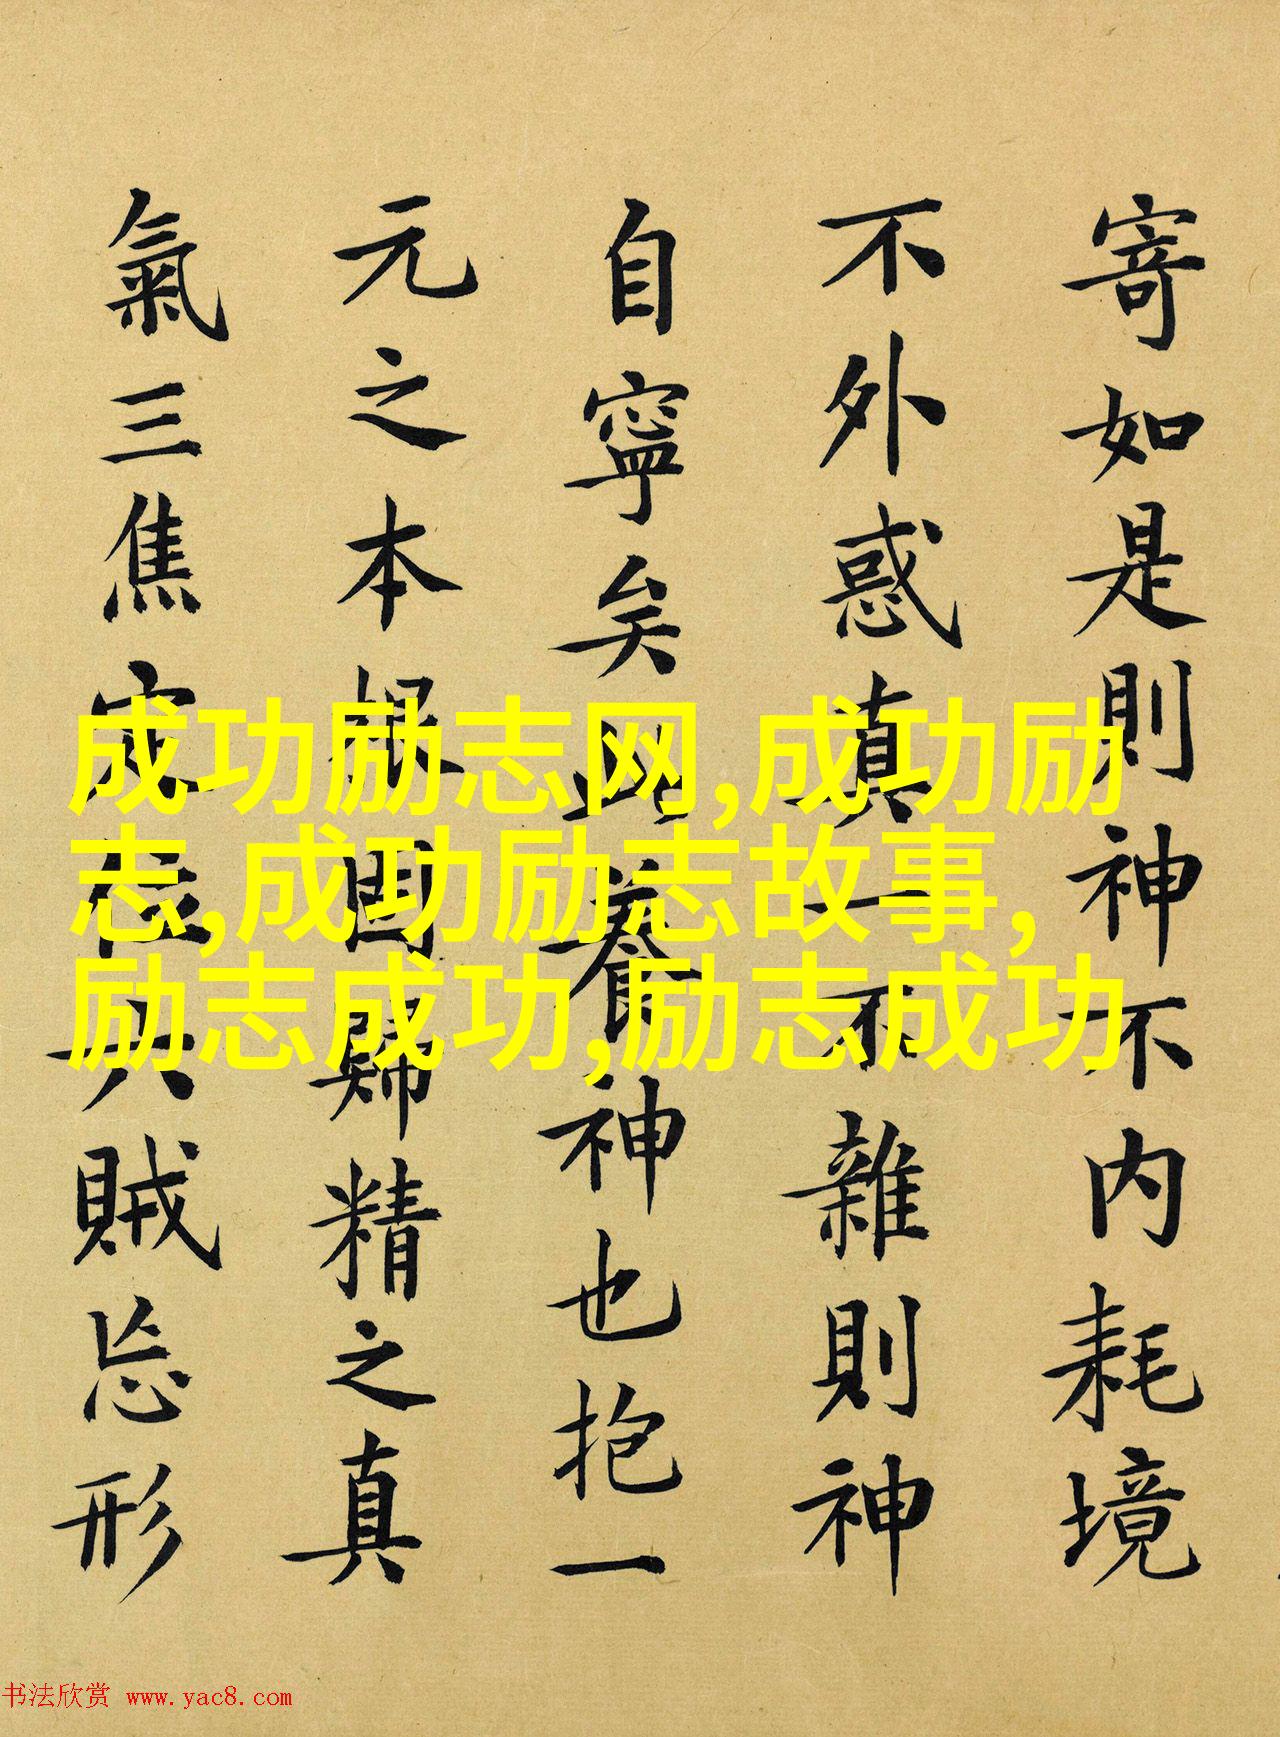 寄如是則神不内耗境
不外惑真一不雜則神
自寧矣此養神也抱一
元之本根固歸精之真
氣三焦定位六賊忘形
成功励志网,成功励
志,成功励志故事,
励志成功,励志成功
书法欣赏 www.yac8.com